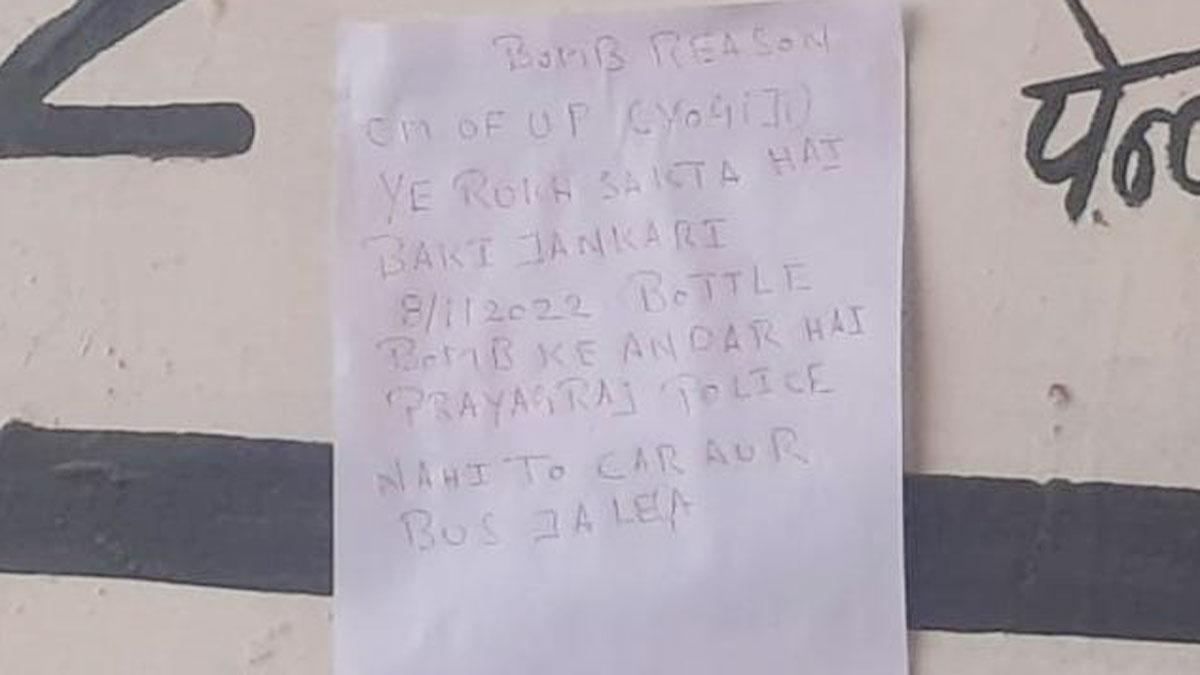 BOMB REASON
CM OF UP (YOGIJI)
YE ROKH SAKTA HAI
BAKI JANKARI
8/1/2022 BOTTLE
BOMB KE ANDAR HAI
PRAYAGRAJ POLICE
NAHI TO CAR AUR
BUS JALEA
2